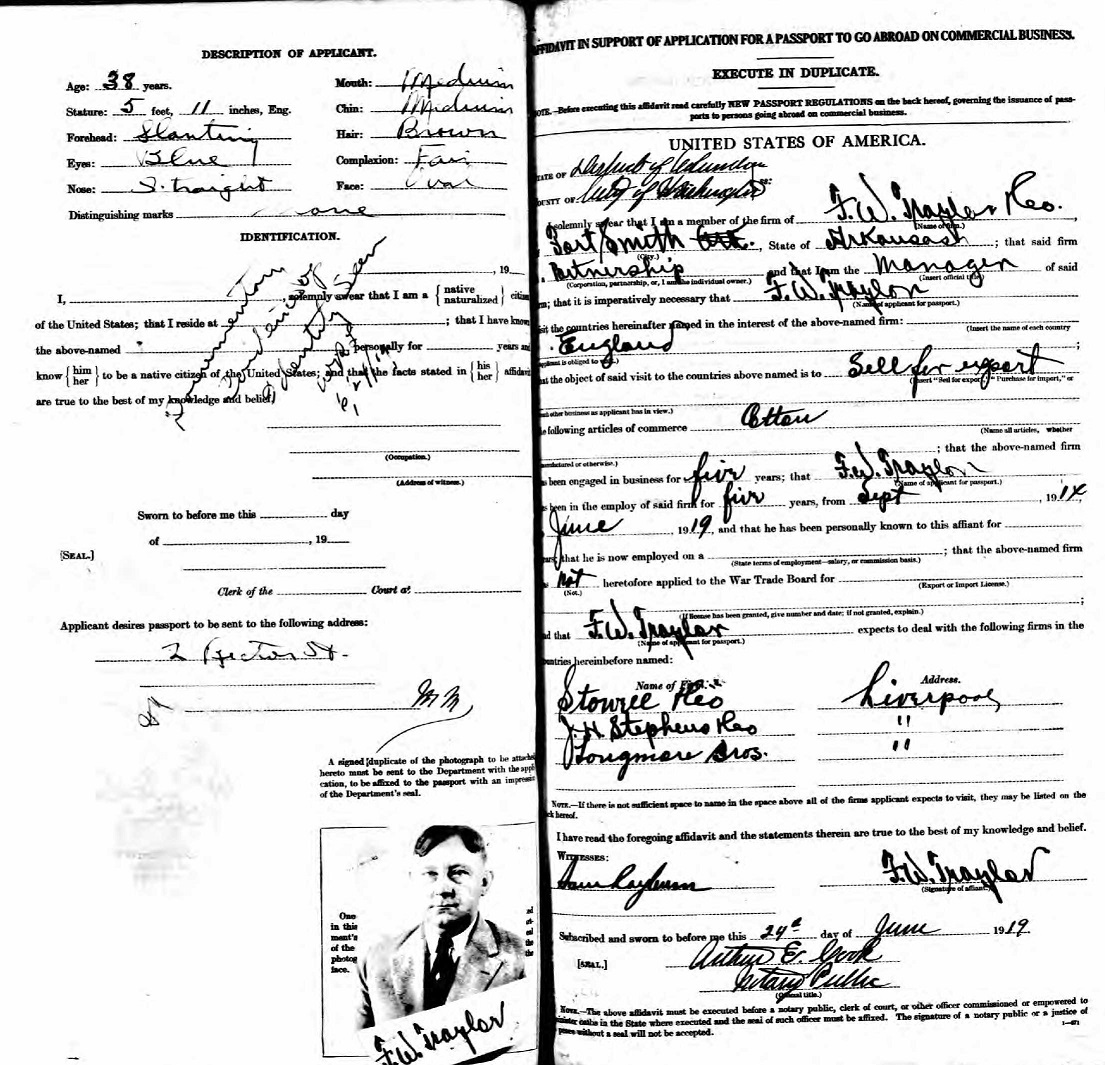 DESCRIPTION OF APPLICANT.
Age: 38 years.
Mouth: Medium
Stature: 5 feet, 11 inches, Eng.
Chin: Medium
Forehead: Slanting
Hair: Brown
Eyes: Blue
Complexion: Fair
Nose: Straight
Face: Oval
Distinguishing marks none
IDENTIFICATION.
, 19
I, , solemnly swear that I am a { native naturalized } citiz
of the United States; that I reside at ; that I have know
the above-named personally for years and
know { him her } to be a native citizen of the United States; and that the facts stated in { his her } affidavit
are true to the best of my knowledge and belief.
evidence of
identity seen
(Occupation.)
(Address of witness.)
Sworn to before me this day
of , 19
[SEAL.]
Clerk of the Court at
Applicant desires passport to be sent to the following address:
2 Rector St.
A signed duplicate of the photograph to be attach
hereto must be sent to the Department with the appli
cation, to be affixed to the passport with an impress
of the Department's seal.
One
in this
ment's
of the
photog
face.
F.W. Traylor
AFFIDAVIT IN SUPPORT OF APPLICATION FOR A PASSPORT TO GO ABROAD ON COMMERCIAL BUSINESS.
EXECUTE IN DUPLICATE.
NOTE.—Before executing this affidavit read carefully NEW PASSPORT REGULATIONS on the back hereof, governing the issuance of pass-
ports to persons going abroad on commercial business.
UNITED STATES OF AMERICA.
STATE OF District of Columbia
COUNTY OF City of Washington ss:
solemnly swear that I am a member of the firm of F.W. Traylor & Co.
(Name of firm.)
Fort Smith , State of Arkansas ; that said firm
(City.)
Partnership and that I am the Manager of said
(Corporation, partnership, or, I am the individual owner.) (Insert official title.)
; that it is imperatively necessary that F.W. Traylor
(Name of applicant for passport.)
the countries hereinafter named in the interest of the above-named firm:
(Insert the name of each country
England ;
applicant is obliged to visit.)
the object of said visit to the countries above named is to Sell for export
(Insert "Sell for export," "Purchase for import," or
other business as applicant has in view.)
following articles of commerce Cotton
(Name all articles, whether
manufactured or otherwise.) ; that the above-named firm
been engaged in business for five years; that F.W. Traylor
(Name of applicant for passport.)
been in the employ of said firm for five years, from Sept , 1914,
June 1919, and that he has been personally known to this affiant for
that he is now employed on a ; that the above-named firm
(State terms of employment—salary, or commission basis.)
not heretofore applied to the War Trade Board for
(Not.) (Export or Import License.)
;
(If license has been granted, give number and date; if not granted, explain.)
that F.W. Traylor expects to deal with the following firms in the
(Name of applicant for passport.)
countries hereinbefore named:
Name of Firm. Address.
& Co Liverpool
J.H. Stephens & Co "
Longmore Bros. "
NOTE.—If there is not sufficient space to name in the space above all of the firms applicant expects to visit, they may be listed on the
back hereof.
I have read the foregoing affidavit and the statements therein are true to the best of my knowledge and belief.
WITNESSES:
Sam Rayburn F.W. Traylor
(Signature of affiant.)
Subscribed and sworn to before me this 24th day of June 1919
[SEAL.] Arthur E. Cook
Notary Public
(Official title.)
NOTE.—The above affidavit must be executed before a notary public, clerk of court, or other officer commissioned or empowered to
administer oaths in the State where executed and the seal of such officer must be affixed. The signature of a notary public or a justice of
peace without a seal will not be accepted.
1—671